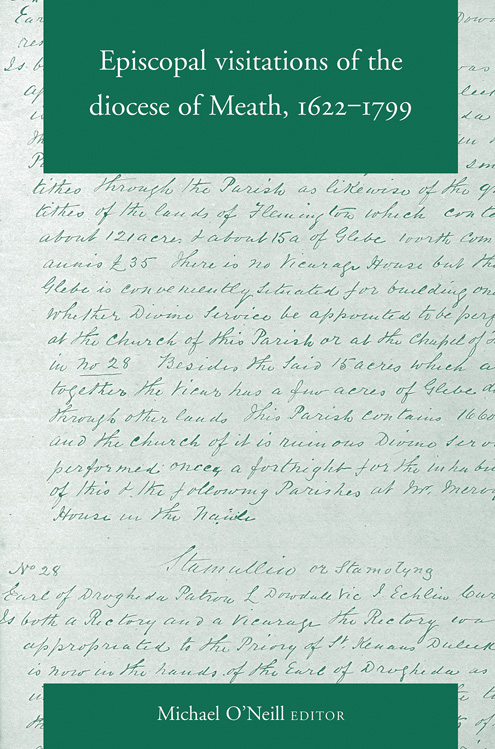 Episcopal visitations of the
diocese of Meath, 1622–1799
tithes through the Parish as likewise of the
tithes of the lands of Flemington which
about 121 acres & about 15a of Glebe worth Com
annis £35 There is no Vicarage House but
Glebe is conveniently situated for building
whether Divine Service be appointed to be
at the Church of this Parish or at the Chapel of
in No 28 Besides the said 15 acres which
together the Vicar has a few acres of Glebe
through other lands This Parish contains
and the church of it is ruinous Divine
performed once a fortnight for the
of this & the following Parishes at Mr.
House in the
No 28 Stamullin or Stamolyng
Earl of Drogheda Patron L Dowdall Vic J. Echlin
Is both a Rectory and a Vicarage the Rectory was
appropriated to the Priory of St. Kenans
is now in the hands of the Earl of Drogheda as
Michael O'Neill EDITOR